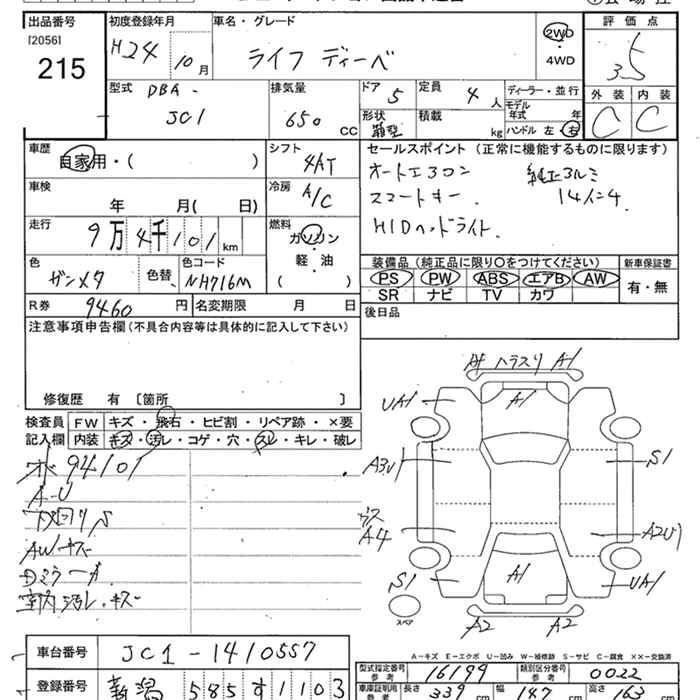 出品番号
[2056]
215
初度登録年月
H24 10月
車名・グレード
ライフ ディーバ
2WD
・
4WD
評価点
3.5
外装 内装
C C
型式
DBA-
JC1
排気量
650 CC
ドア 5
定員 4人
形状 箱型
積載 kg
ディーラー・並行
モデル年式 年
ハンドル 左・右
車歴
自家用・( )
シフト
4AT
セールスポイント (正常に機能するものに限ります)
オートエアコン 純正アルミ
スマートキー 14インチ
HIDヘッドライト
車検
年 月( 日)
冷房
A/C
走行
9万4千101km
燃料
ガソリン
軽・油
( )
色
ガンメタ 色替
色コード
NH716M
装備品 (純正品に限り○をつけてください)
PS PW ABS エアB AW
SR ナビ TV カワ
新車保証書
有・無
R券 9460円
名変期限 月 日
後日品
注意事項申告欄 (不具合内容等は具体的に記入して下さい)
修復歴 有 〔箇所 〕
検査員記入欄
FW キズ・飛石・ヒビ割・リペア跡・×要
内装 キズ・汚レ・コゲ・穴・スレ・キレ・破レ
94101
A-U
下回りS
AWキズ
Dミラー A
室内汚レ・キズ
A1 ハラスリ A1
UA1 A1
A3U S1
ガス
A4 A2U
S1 A1 UA1
スペア
A2 A2
A-キズ E-エクボ U-凹み W-補修跡 S-サビ C-腐食 ××-交換済
車台番号 JC1-1410557
型式指定番号 参考 16199
類別区分番号 参考 0022
登録番号 新潟 585す1103
車庫証明用 参考 長さ 339 cm 幅 147 cm 高さ 163 cm